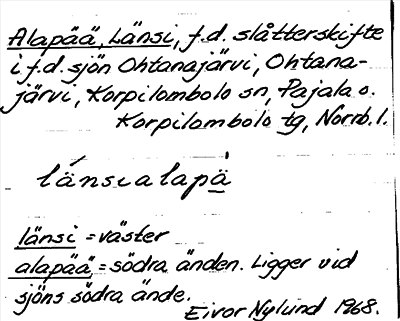 Alapää, Länsi, f.d. slåtterskifte
i f.d. sjön Ohtanajärvi, Ohtana-
järvi, Korpilombolo sn, Pajala o.
Korpilombolo tg, Norrb. l.
lánsıalapä
länsi = väster
alapää = södra änden. Ligger vid
sjöns södra ände.
Eivor Nylund 1968.